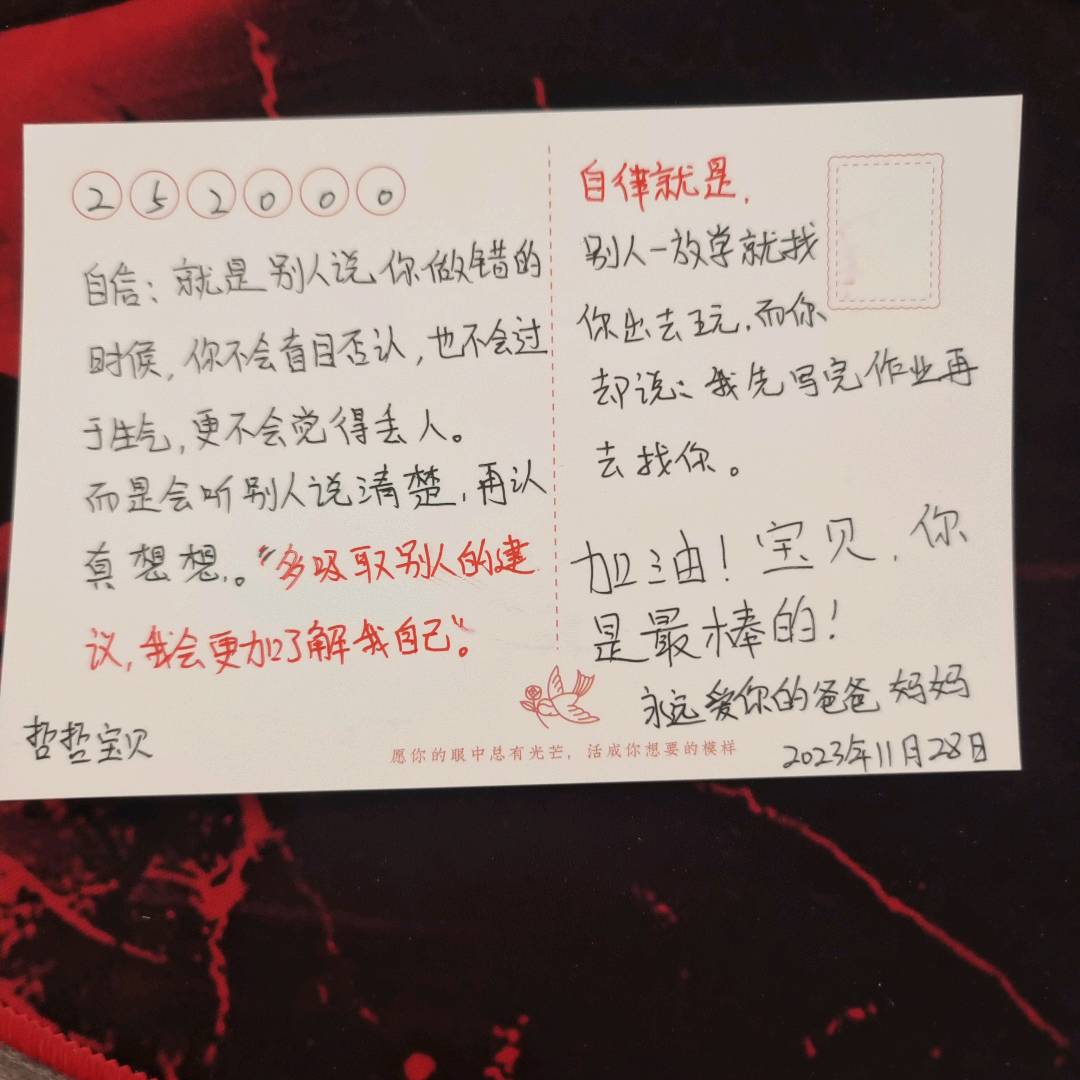 252000
自信：就是别人说你做错的
时候，你不会盲目否认，也不会过
于生气，更不会觉得丢人。
而是会听别人说清楚，再认
真想想。“多吸取别人的建
议，我会更加了解我自己”。
哲哲宝贝
自律就是，
别人一放学就找
你出去玩，而你
却说：我先写完作业再
去找你。
加油！宝贝，你
是最棒的！
永远爱你的爸爸妈妈
2023年11月28日
愿你的眼中总有光芒，活成你想要的模样